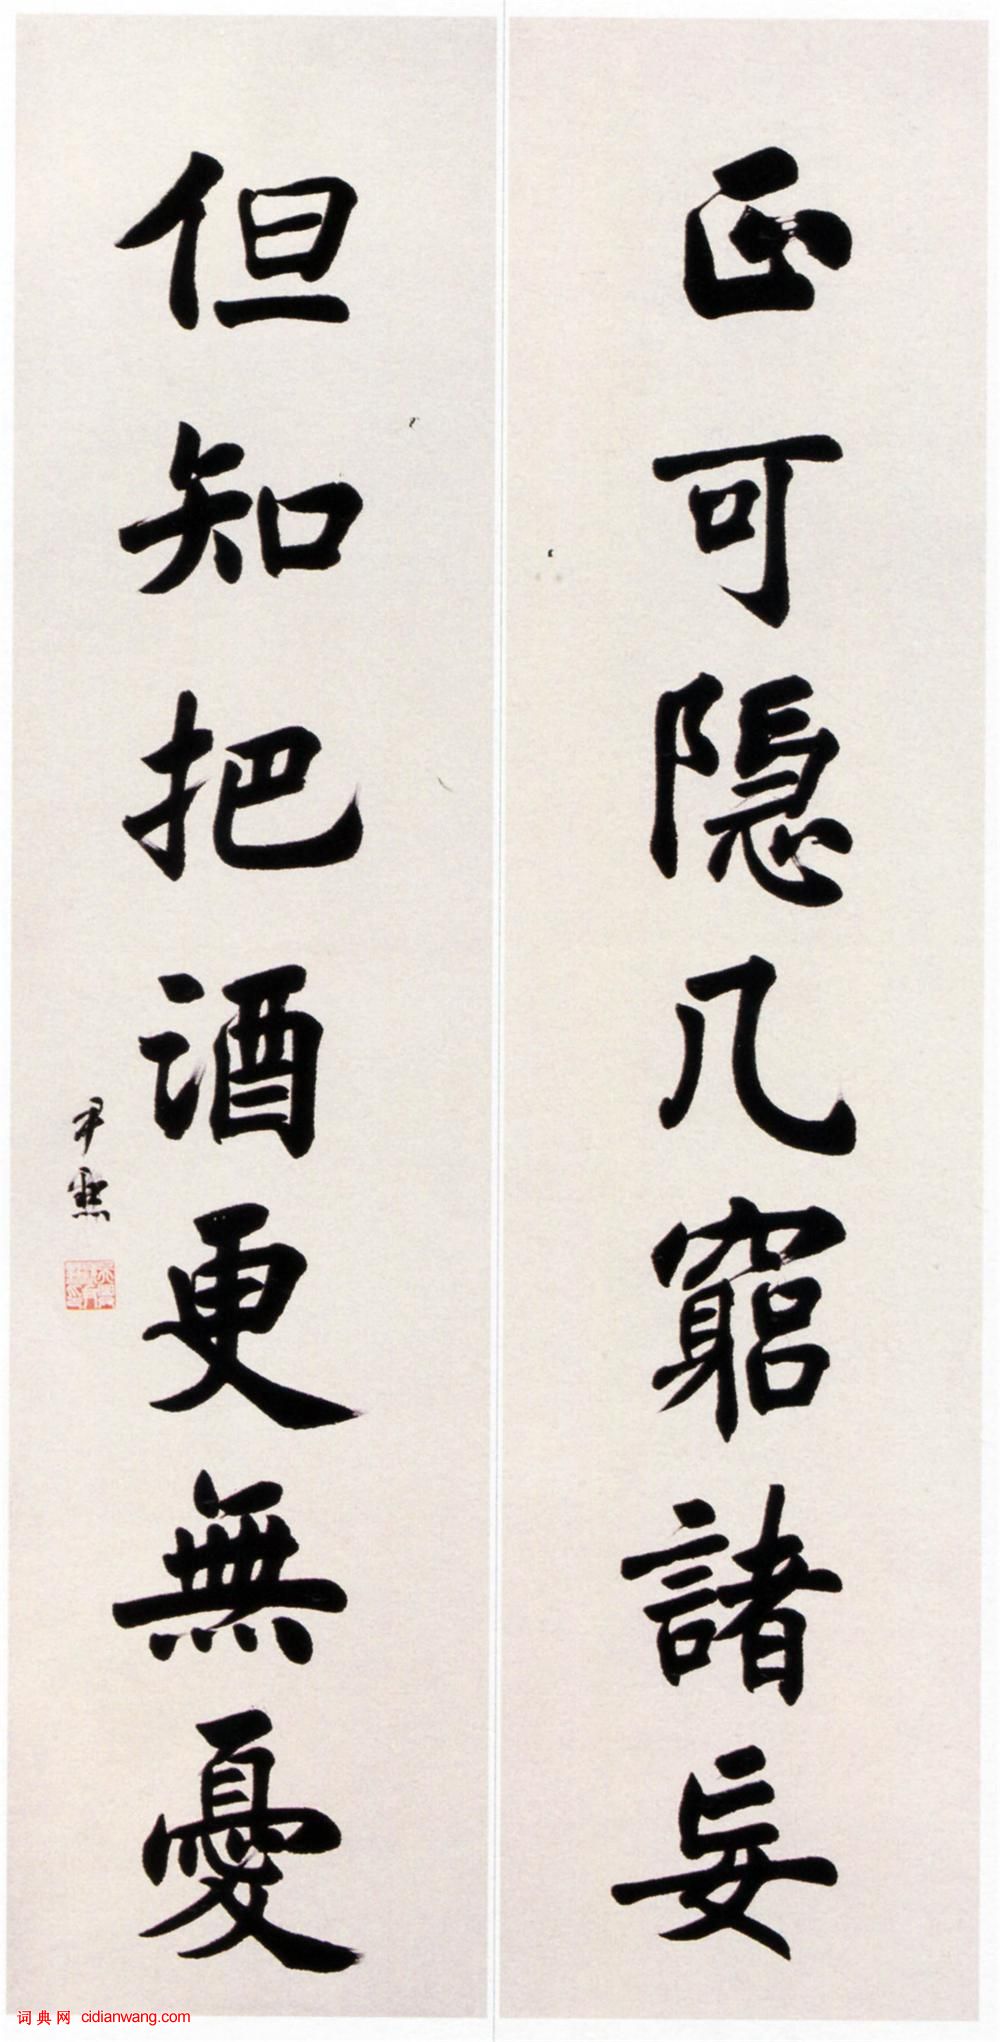 正可隱几窮諸妄
但知把酒更無憂
尹默
词典网 cidianwang.com